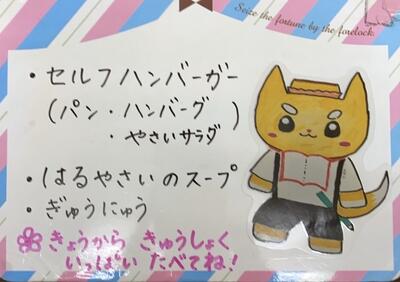 Seize the fortune by the forelock.
・セルフハンバーガー
(パン・ハンバーグ
・やさいサラダ)
・はるやさいのスープ
・ぎゅうにゅう
きょうから きゅうしょく
いっぱい たべてね!